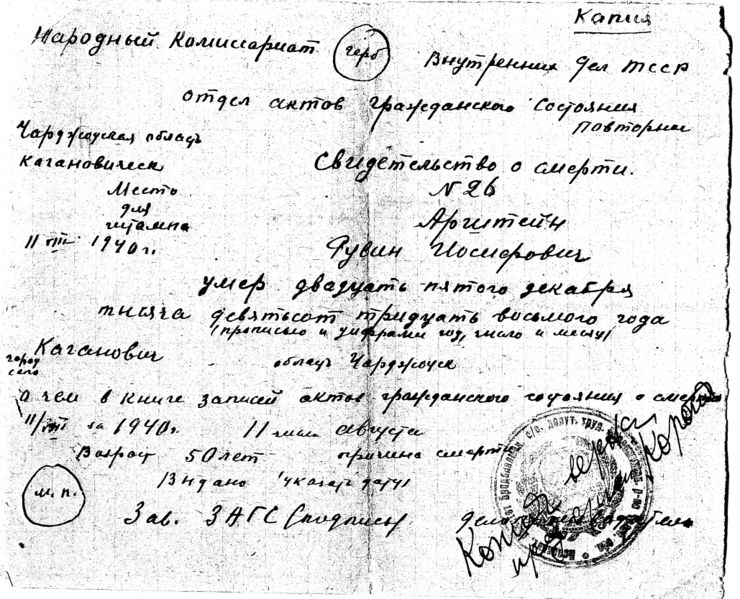 Капия
Народный Комиссариат герб Внутренних Дел ТССР
отдел актов гражданского Состояния
Повторное
Чарджоуская область
Кагановическ
Свидетельство о смерти.
Место
N 26
для
штампа
Арштейн
11 VIII 1940г.
Рувин Иосифович
умер двадцать пятого декабря
тысяча девятьсот тридцать восьмого года
(прописью и цифрами год, число и месяц)
город
село
Каганович область Чарджоуск
о чем в книге записей актов гражданского состояния о смерти
11/VIII за 1940г. 11 числа августа
Возраст 50 лет причина смерти
Выдано (указать дату)
м. п.
Зав. ЗАГС (подпись) Делопроизводитель
Копия верна